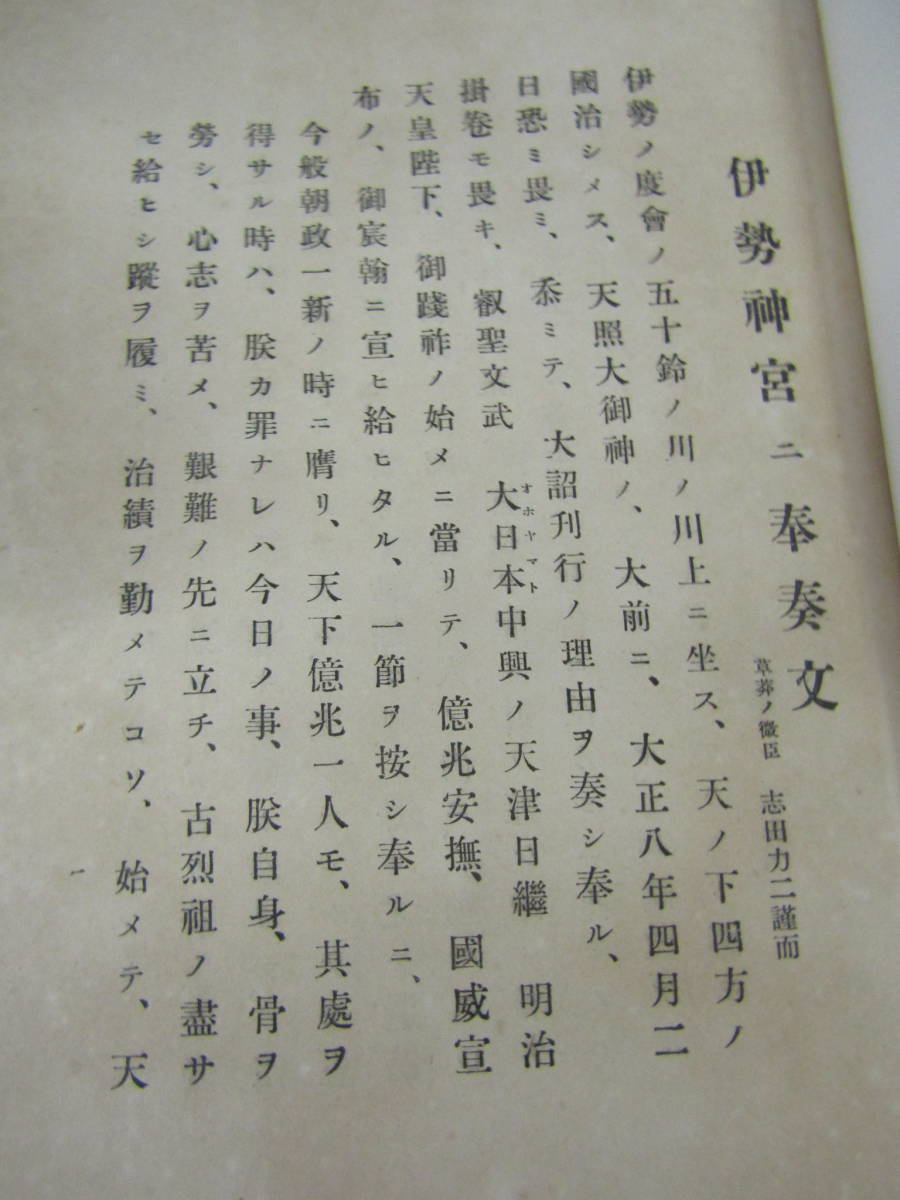 伊勢神宮ニ奉奏文
草莽ノ微臣 志田力二謹而
伊勢ノ度會ノ五十鈴ノ川ノ川上ニ坐ス、天ノ下四方ノ
國治シメス、天照大御神ノ、大前ニ、大正八年四月二
日恐ミ畏ミ、忝ミテ、大詔刋行ノ理由ヲ奏シ奉ル、
掛卷モ畏キ、叡聖文武 大日本中興ノ天津日繼 明治
オホヤマト
天皇陛下、御踐祚ノ始メニ當リテ、億兆安撫、國威宣
布ノ、御宸翰ニ宣ヒ給ヒタル、一節ヲ按シ奉ルニ、
今般朝政一新ノ時ニ膺リ、天下億兆一人モ、其處ヲ
得サル時ハ、朕カ罪ナレハ今日ノ事、朕自身、骨ヲ
勞シ、心志ヲ苦メ、艱難ノ先ニ立チ、古烈祖ノ盡サ
セ給ヒシ蹤ヲ履ミ、治績ヲ勤メテコソ、始メテ、天
一